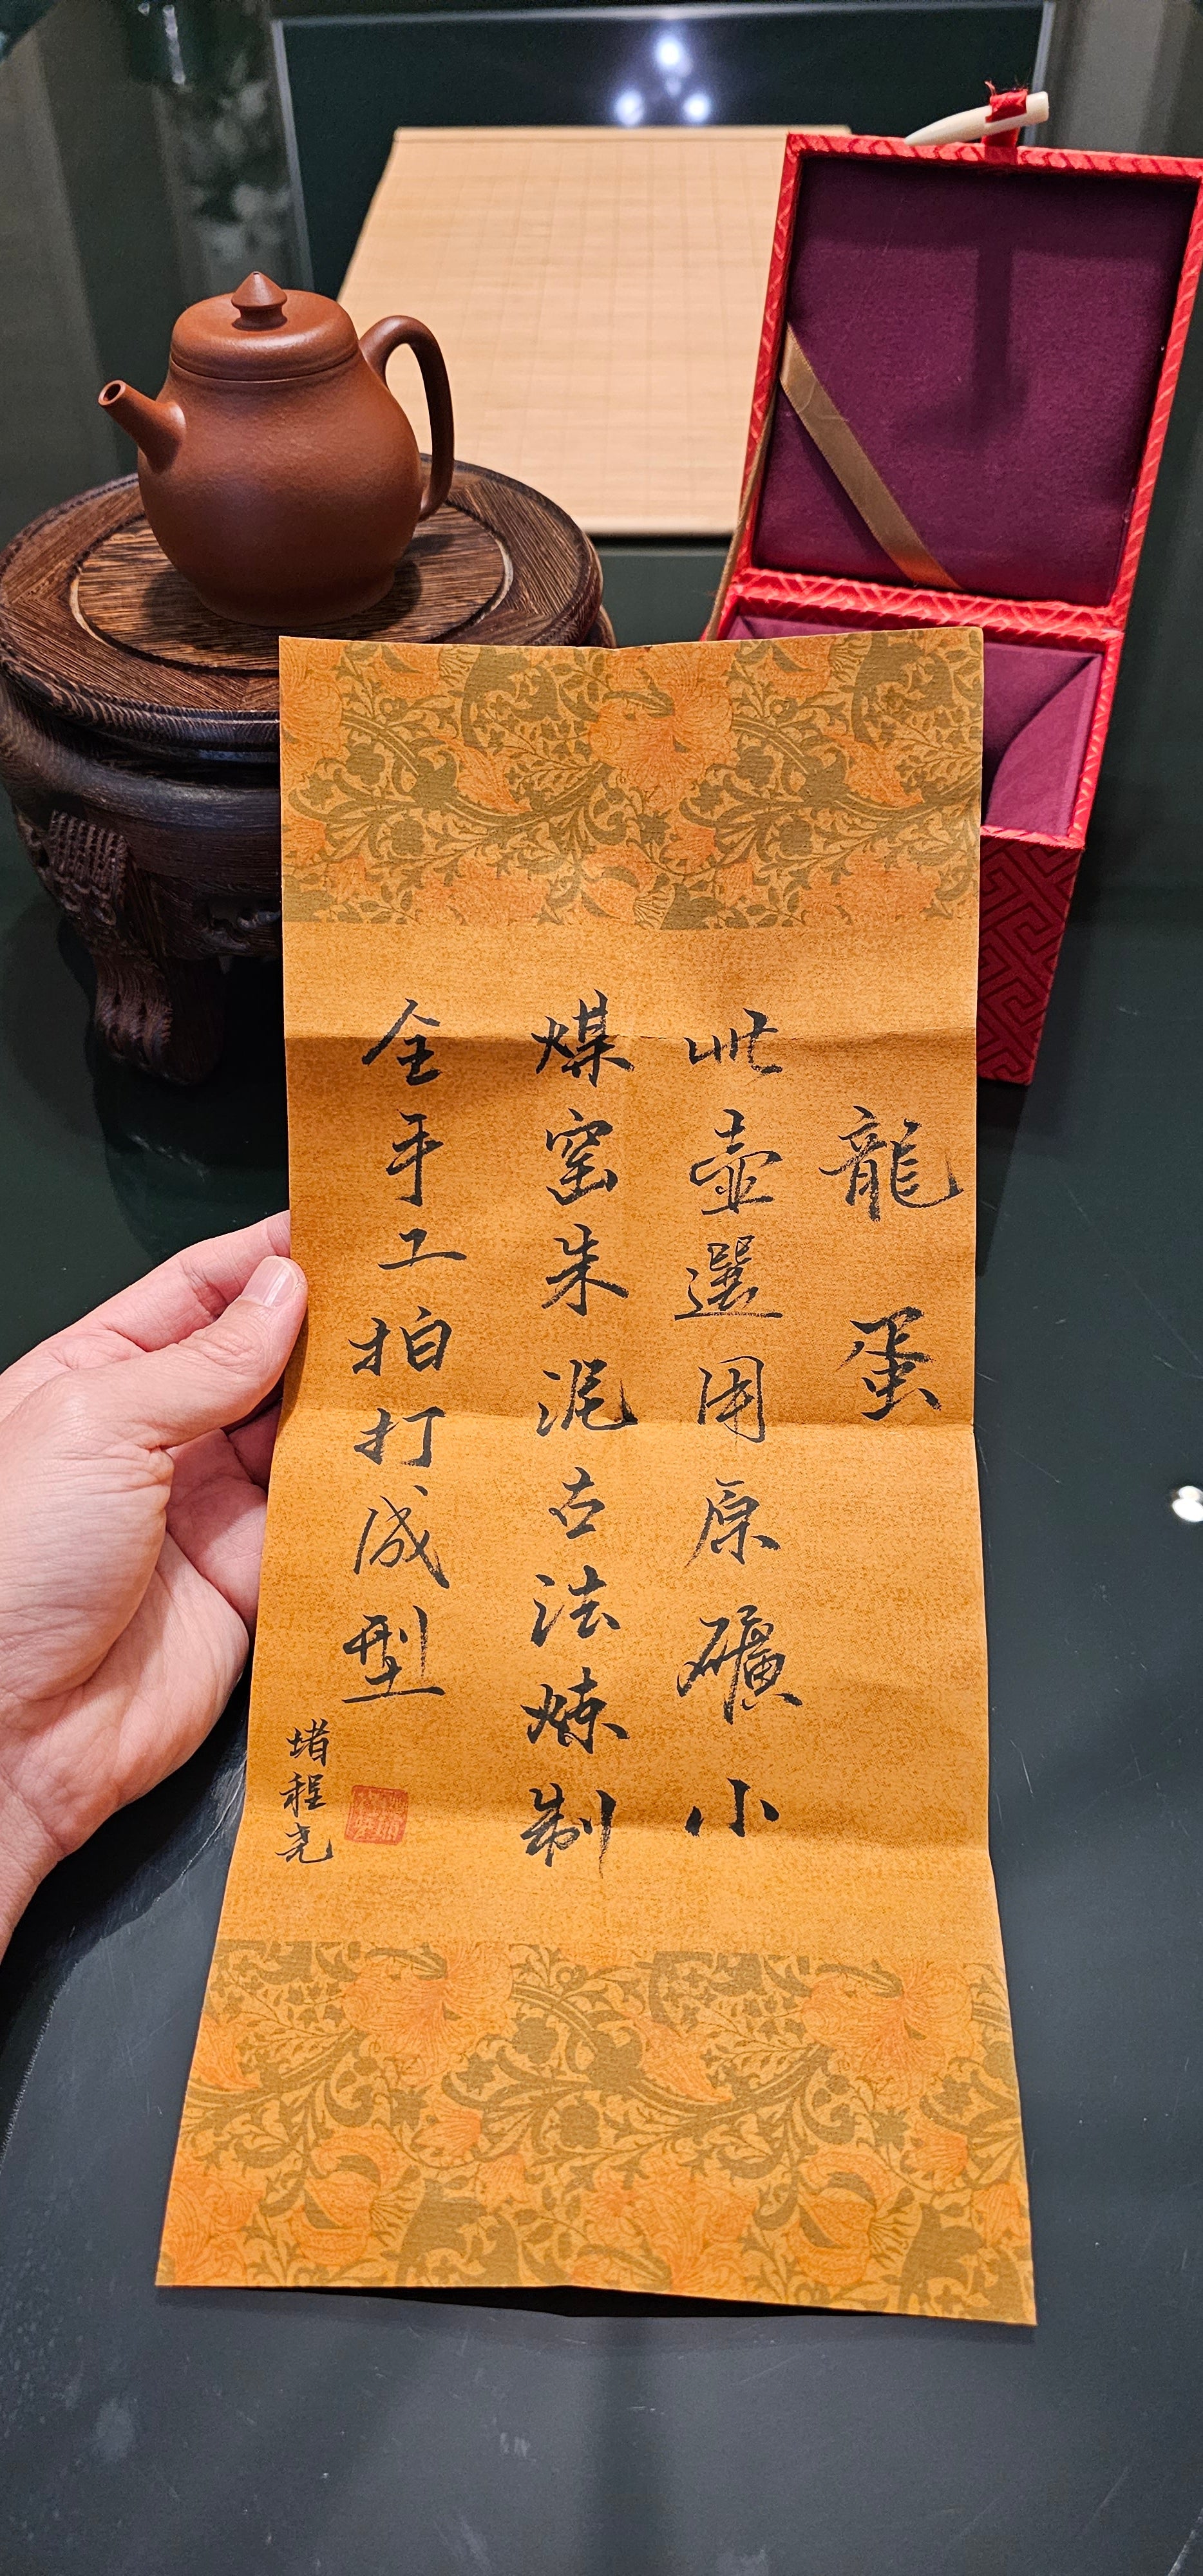 龍蛋
此壺選用原礦小
煤窑朱泥古法煉制
全手工拍打成型
堵程尧